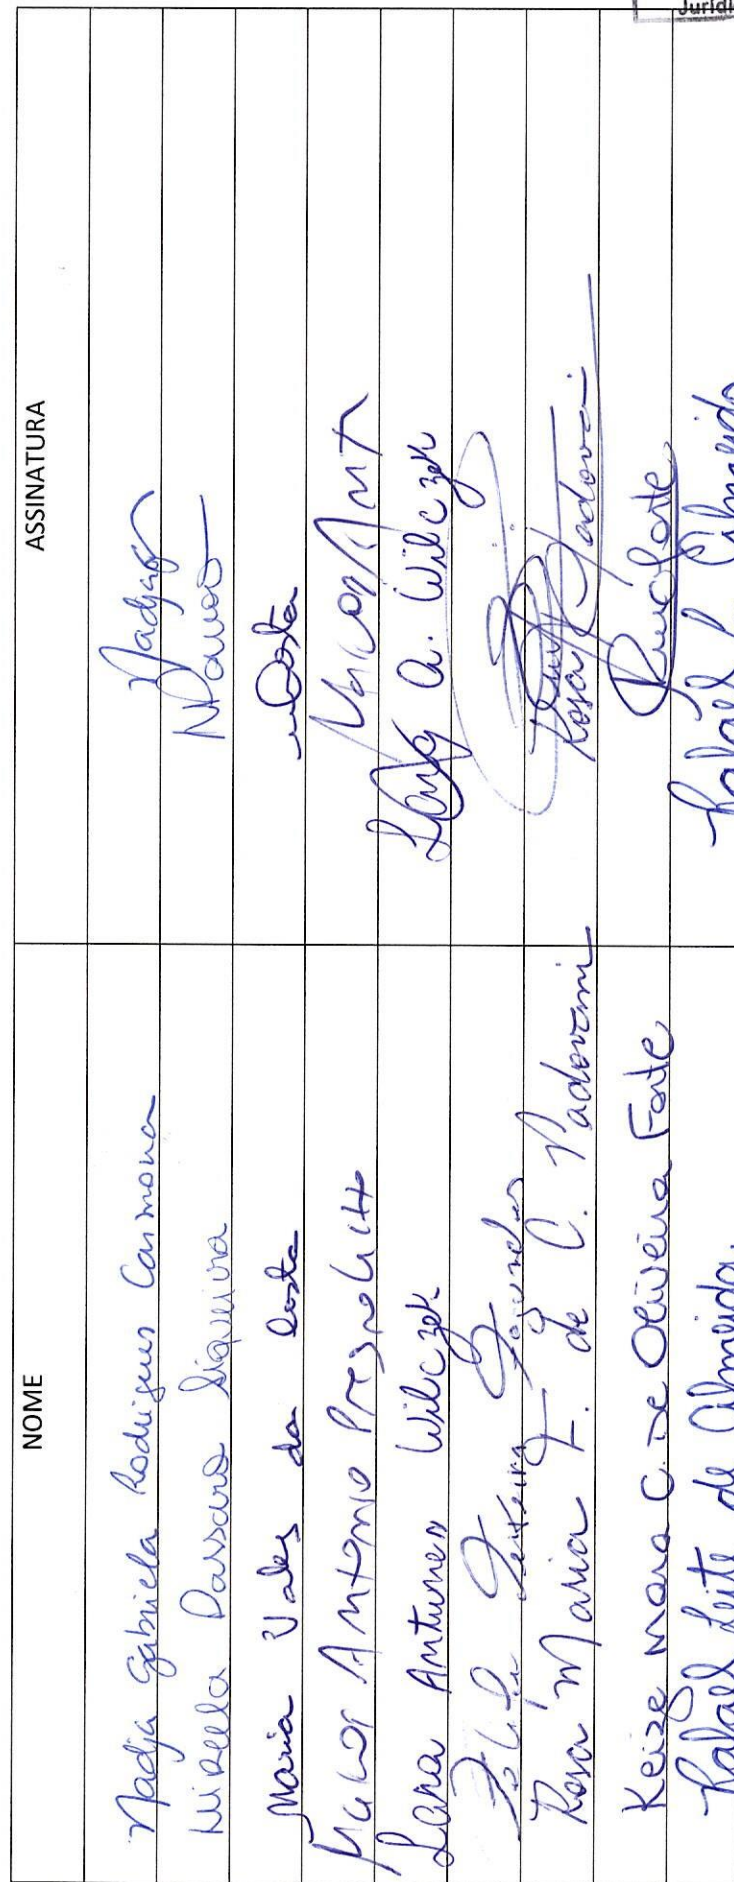 Jurídi
NOME ASSINATURA
Nadja Gabriela Rodrigues Carmona Nadja
Mirella Passaro Siqueira
Maria Vales da Costa Costa
Antonio
Lana Antunes Wilczek Lana A. Wilczek
Teixeira Fagundes
Rosa Maria F. de C. Padovini Rosa Padovini
Keize Mara C. De Oliveira Forte Forte
Rafael Leite de Almeida. Rafael L. Almeida